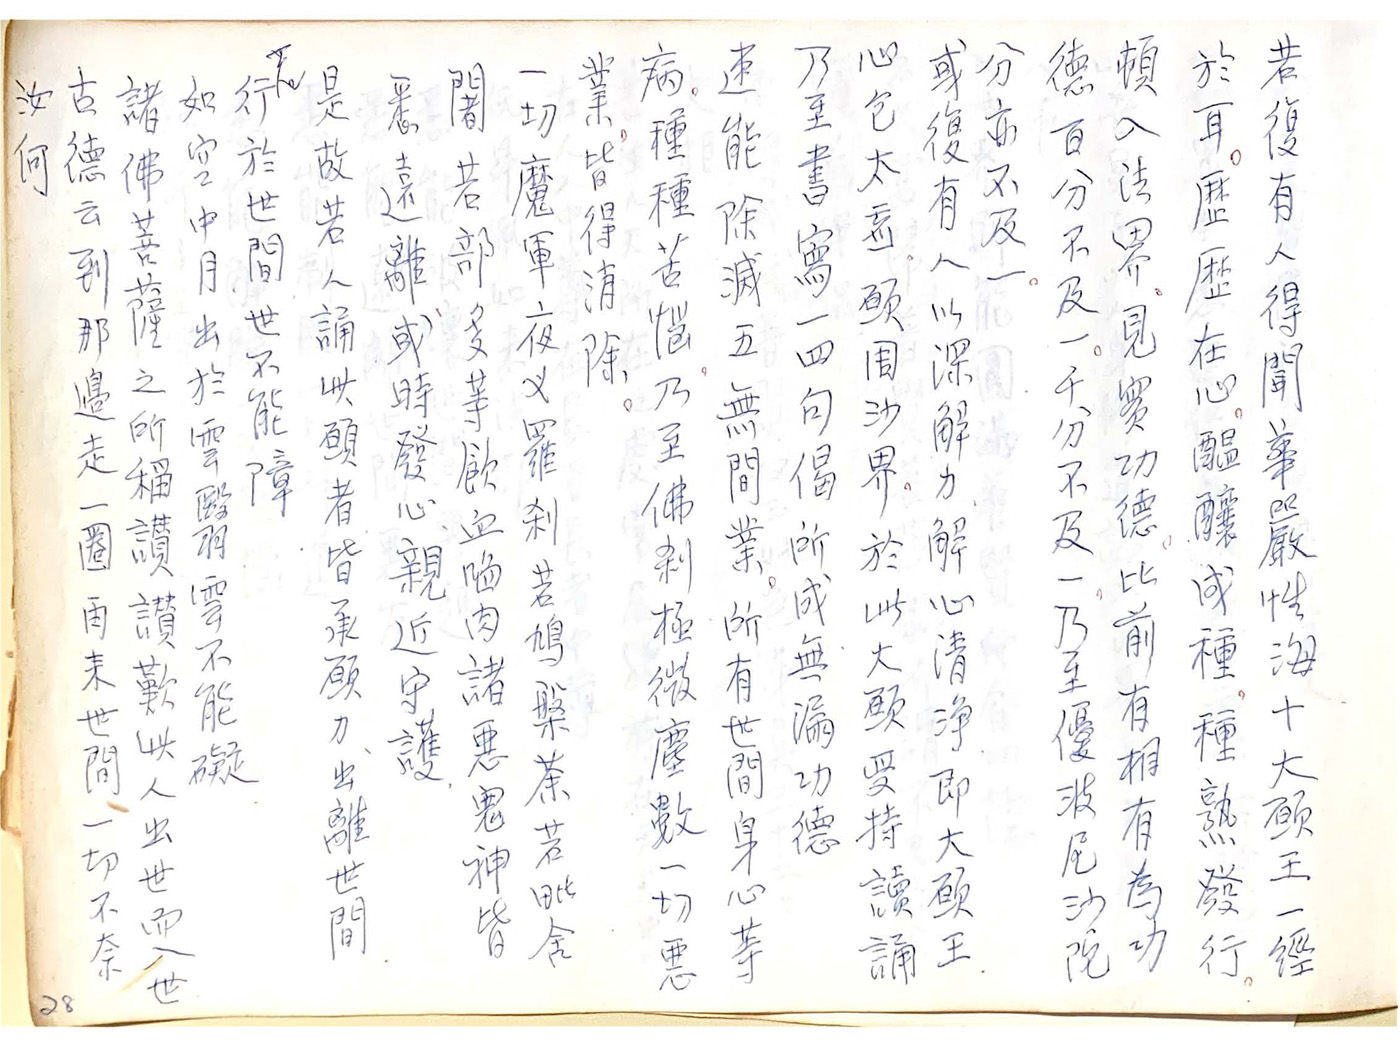 若復有人得聞華嚴性海十大願王一經
於耳。歷歷在心。醞釀成種。種熟發行。
頓入法界。見實功德。比前有相有為功
德百分不及一。千分不及一。乃至優波尼沙陀
分亦不及一。
或復有人以深解力解心清淨即大願王
心包太虛願周沙界。於此大願受持讀誦
乃至書寫一四句偈所成無漏功德
速能除滅五無間業。所有世間身心等
病。種種苦惱。乃至佛刹極微塵數一切惡
業。皆得消除。
一切魔軍夜义羅刹若鳩槃荼若毗舍
闍若部多等飲血啗肉諸惡鬼神皆
悉遠離或時發心親近守護
是故若人誦此願者皆承願力、出離世間
行於世間世不能障
如空中月出於雲翳雲不能礙
諸佛菩薩之所稱讚讚歎此人出世而入世
古德云到那邊走一圈再来世間一切不奈
汝何
28